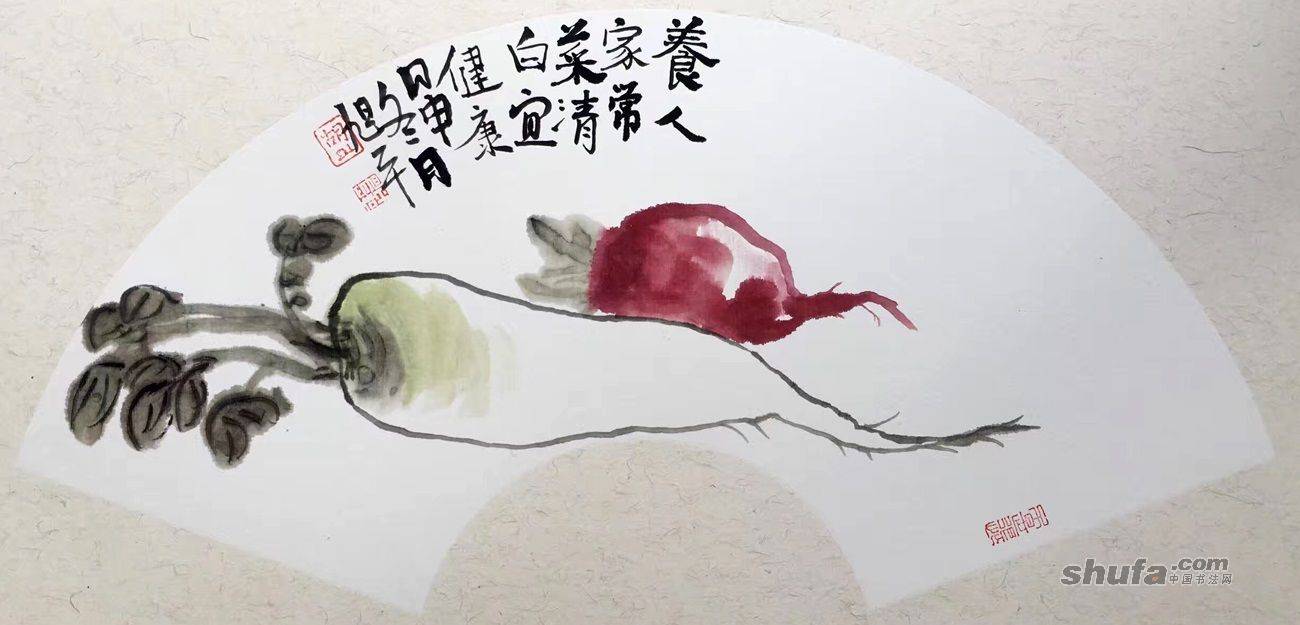 養人
家常
菜清
白宜
健康
申月
shufa.com
中国书法网